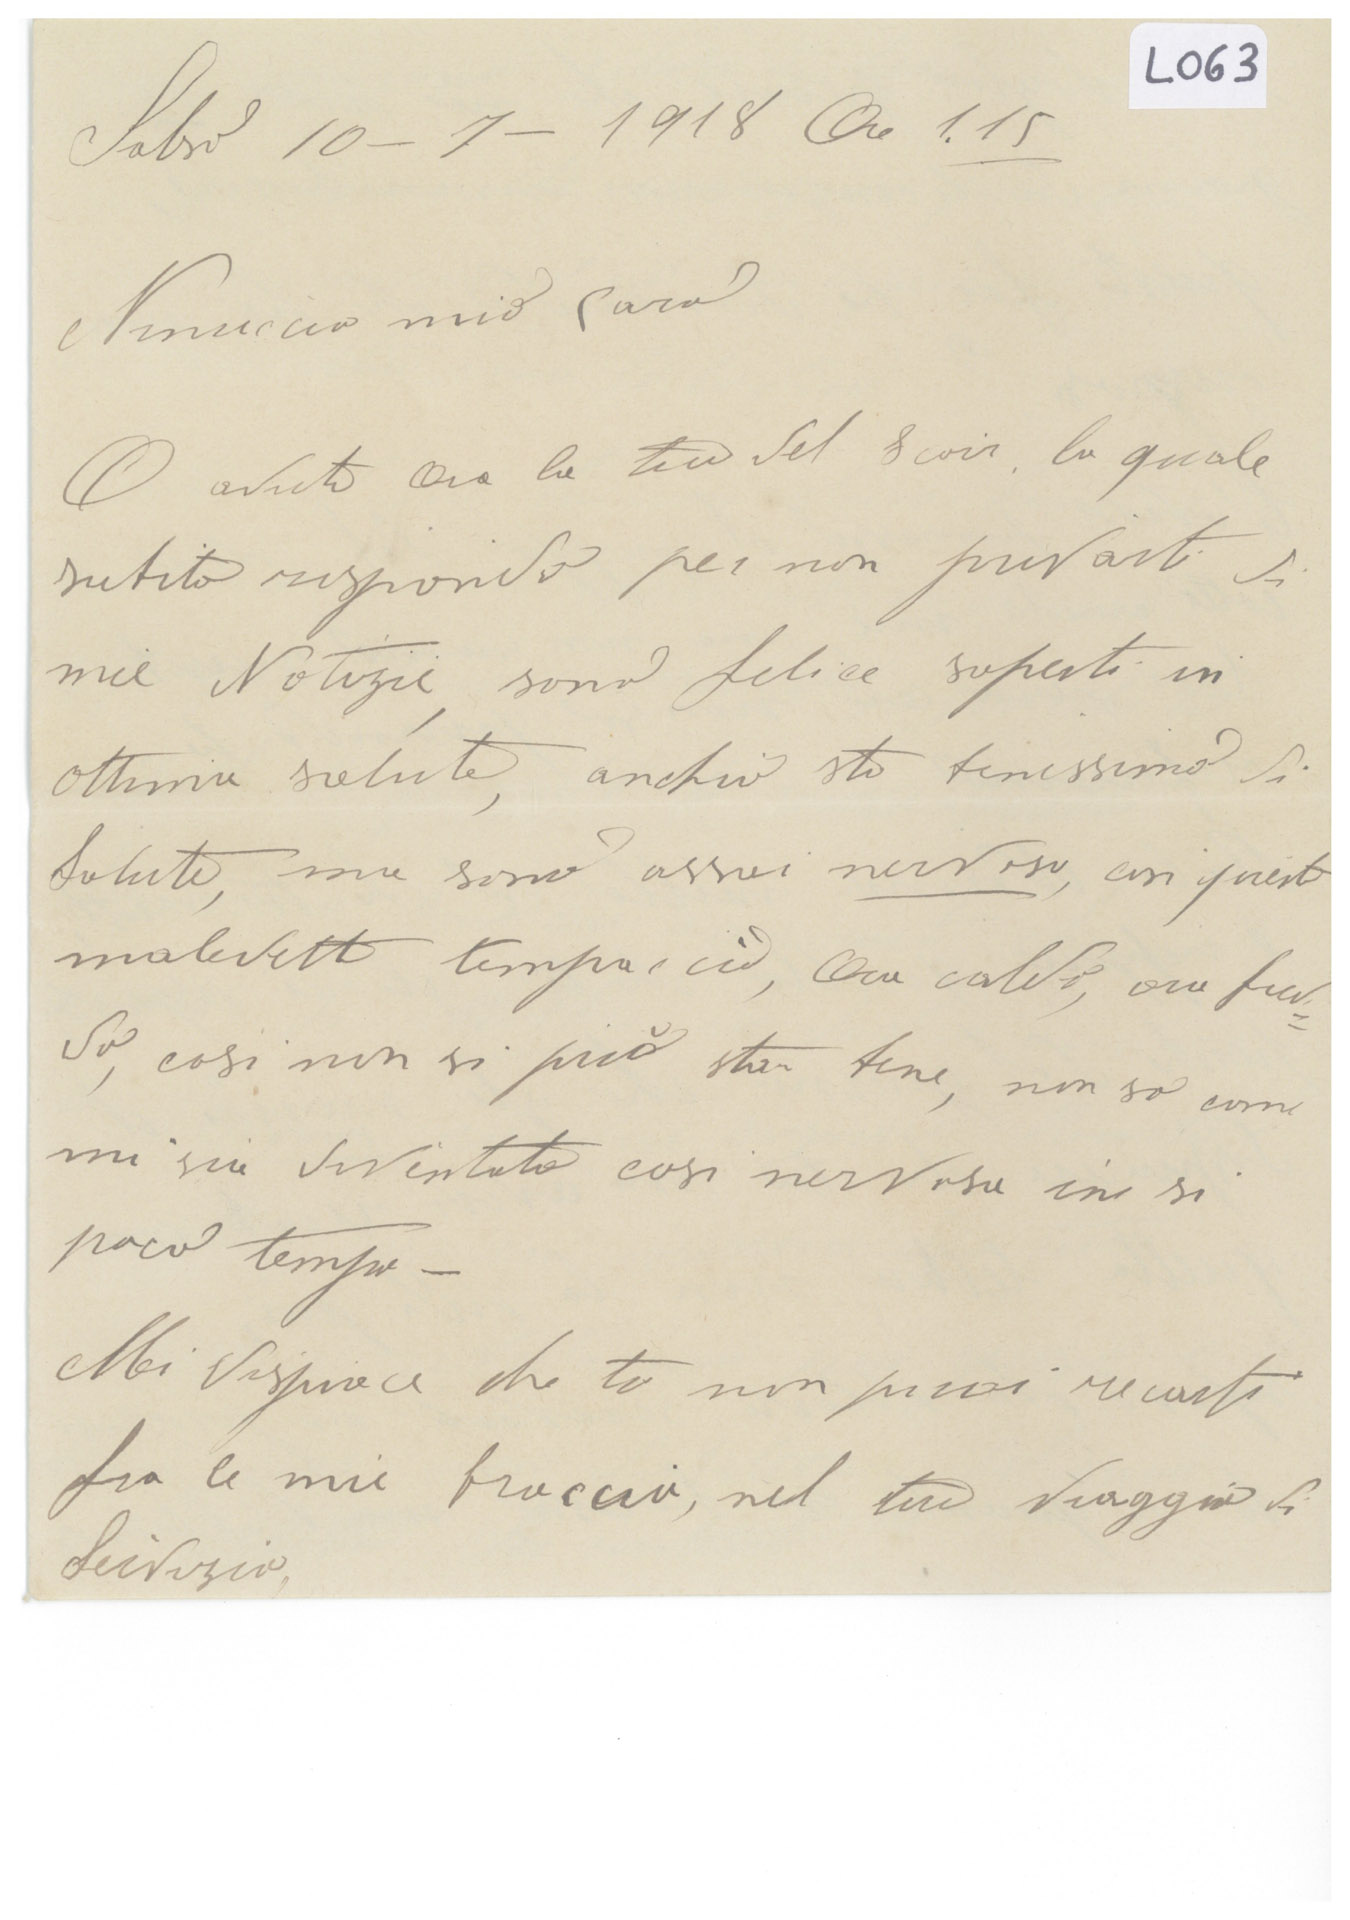 L063
Salsò 10-7-1918 Ore 1.15
Ninuccio mio Caro
O avuto Ora la tua del scor. la quale
subito rispondo per non privarti di
mie Notizie, sono felice saperti in
ottima salute, anchio sto benissimo di
Salute, ma sono assai nervosa, con questo
maledetto tempaccio, Ora caldo, ora fred=
do, cosi non si può star bene, non so come
mi sia diventata cosi nervosa in si
poco tempo -
Mi dispiace che tu non puoi recarti
fra le mie braccia, nel tuo viaggio di
Servizio,